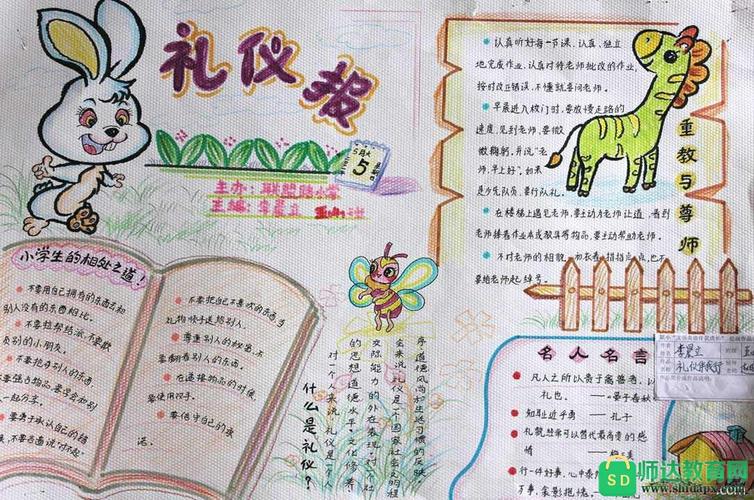 礼仪报
5月大
5
主办:联盟路小学
主编:李晨立
小学生的相处之道!
不要用自己拥有的东西去和
别人没有的东西相比。
不要拉帮结派,不要欺
负别的小朋友。
不要抢夺别人的东西。
要强力物品,要学会和别
人一起分享。
要勇于承认自己的错
误,不要吝啬说“对不起”
不要把自己不喜欢的东西当
礼物似乎送给别人。
尊重别人的权利,不
要翻看别人的东西。
在递接物品的时候,
要使用双手。
要信守自己的承
诺。
什么是礼仪?
对一个人来说,礼仪是一个人
的思想道德水平、文化修养、
交际能力的外在表现,对个社
会来说,礼仪是一个国家社会文明程
序、道德风尚和生活习惯的反映
认真听好每一节课,认真、独立
地完成作业,认真对待老师批改的作业,
按时改正错误,不懂就要问老师。
早晨进入校门时,要放慢走路的
速度,见到老师,要微
微鞠躬,并说“老
师,早上好”,如果
是少先队员,要行队礼。
在楼梯上遇见老师,要主动为老师让道,看到
老师捧着作业本或教具等物品,要主动帮助老师。
不对老师的相貌和衣着指指点点,也不
要给老师起绰号。
重教与尊师
名人名言
凡人之所以贵于禽兽,以
礼也。——晏子春秋
知耻近乎勇 ——孔子
礼貌想来可以替代最高贵的感
情
行一件好事,心中泰
李晨立
礼仪伴我行
SD师达教育网
www.shfdapx.com